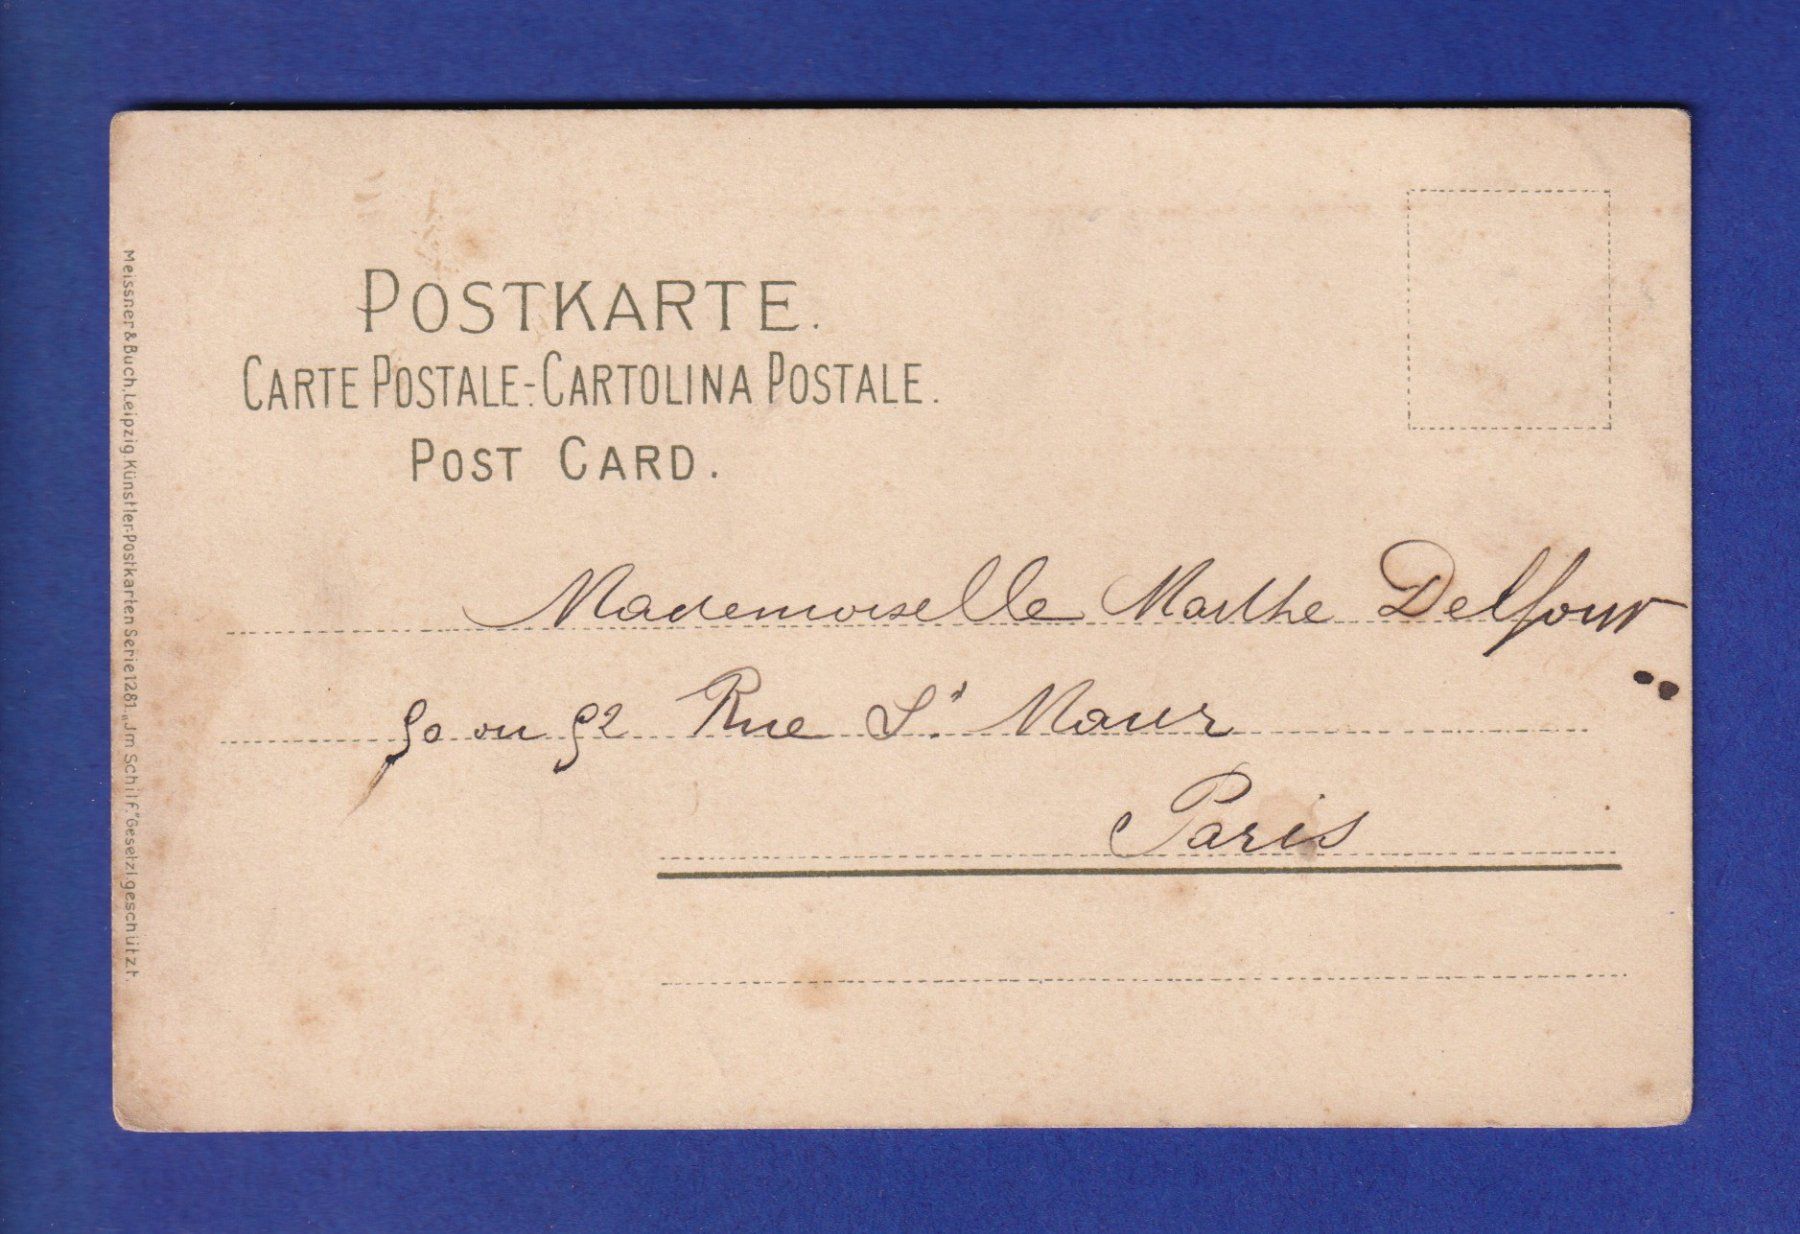 POSTKARTE.
CARTE POSTALE-CARTOLINA POSTALE.
POST CARD.
Mademoiselle Marthe Delfour
50 ou 52 Rue St. Maur
Paris
Meissner & Buch, Leipzig. Künstler-Postkarten Serie 1281 „Jm Schilf." Gesetzl. geschützt.